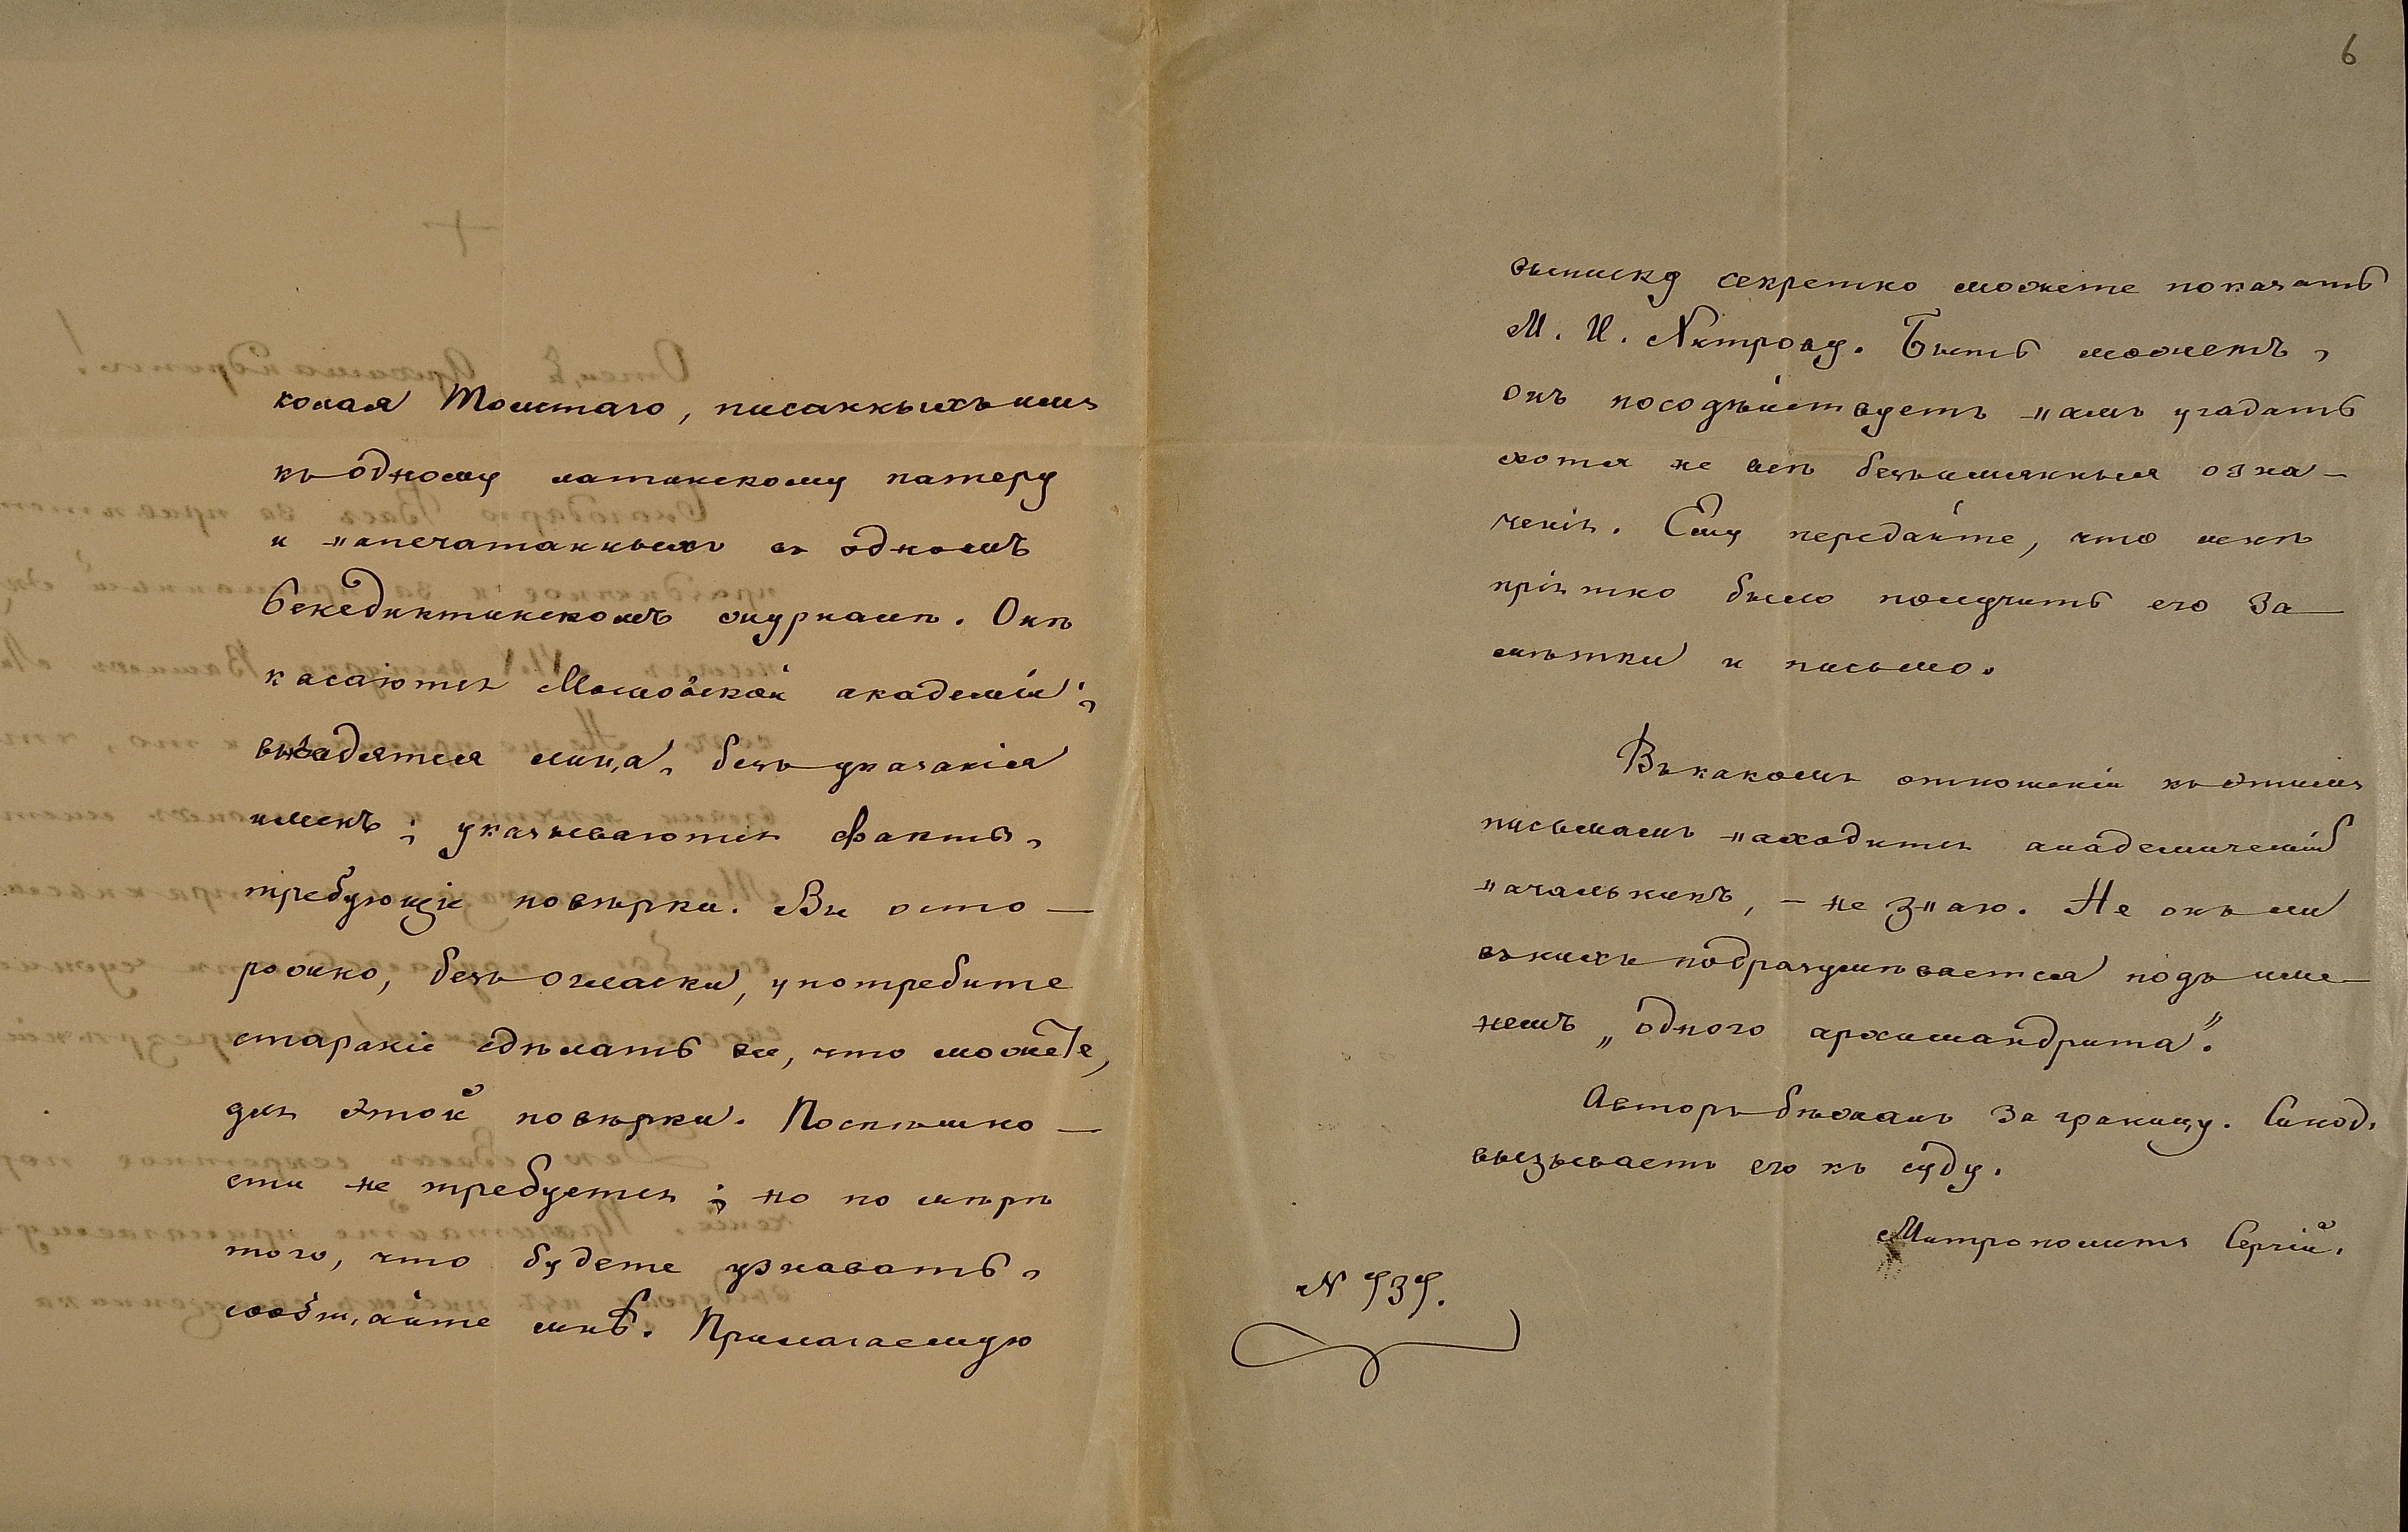 колая Толстаго, писанныхъ имъ
къ одному латинскому патеру
и напечатанныхъ въ одномъ
бенедиктинскомъ журналѣ. Онѣ
касаются Московской академіи;
выводятся лица, безъ указанія
именъ; указываются факты,
требующіе повѣрки. Вы осто-
рожно, безъ огласки, употребите
стараніе сдѣлать все, что можете,
для этой повѣрки. Поспѣшно-
сти не требуется; но по мѣрѣ
того, что будете узнавать,
сообщайте мнѣ. Прилагаемую
6
выписку секретно можете показать
М. И.
Быть можетъ,
онъ посодѣйствуетъ намъ угадать
хотя не всѣ безъимянныя озна-
ченія. Ему передайте, что мнѣ
пріятно было получить его за-
мѣтки и письмо.
Въ какомъ отношеніи къ этимъ
письмамъ находится академическій
начальникъ, – не знаю. Не онъ ли
въ нихъ подразумѣвается подъ име-
немъ „одного архимандрита".
Авторъ бѣжалъ за границу. Синодъ
вызываетъ его къ суду.
Митрополитъ Сергій.
N 939.